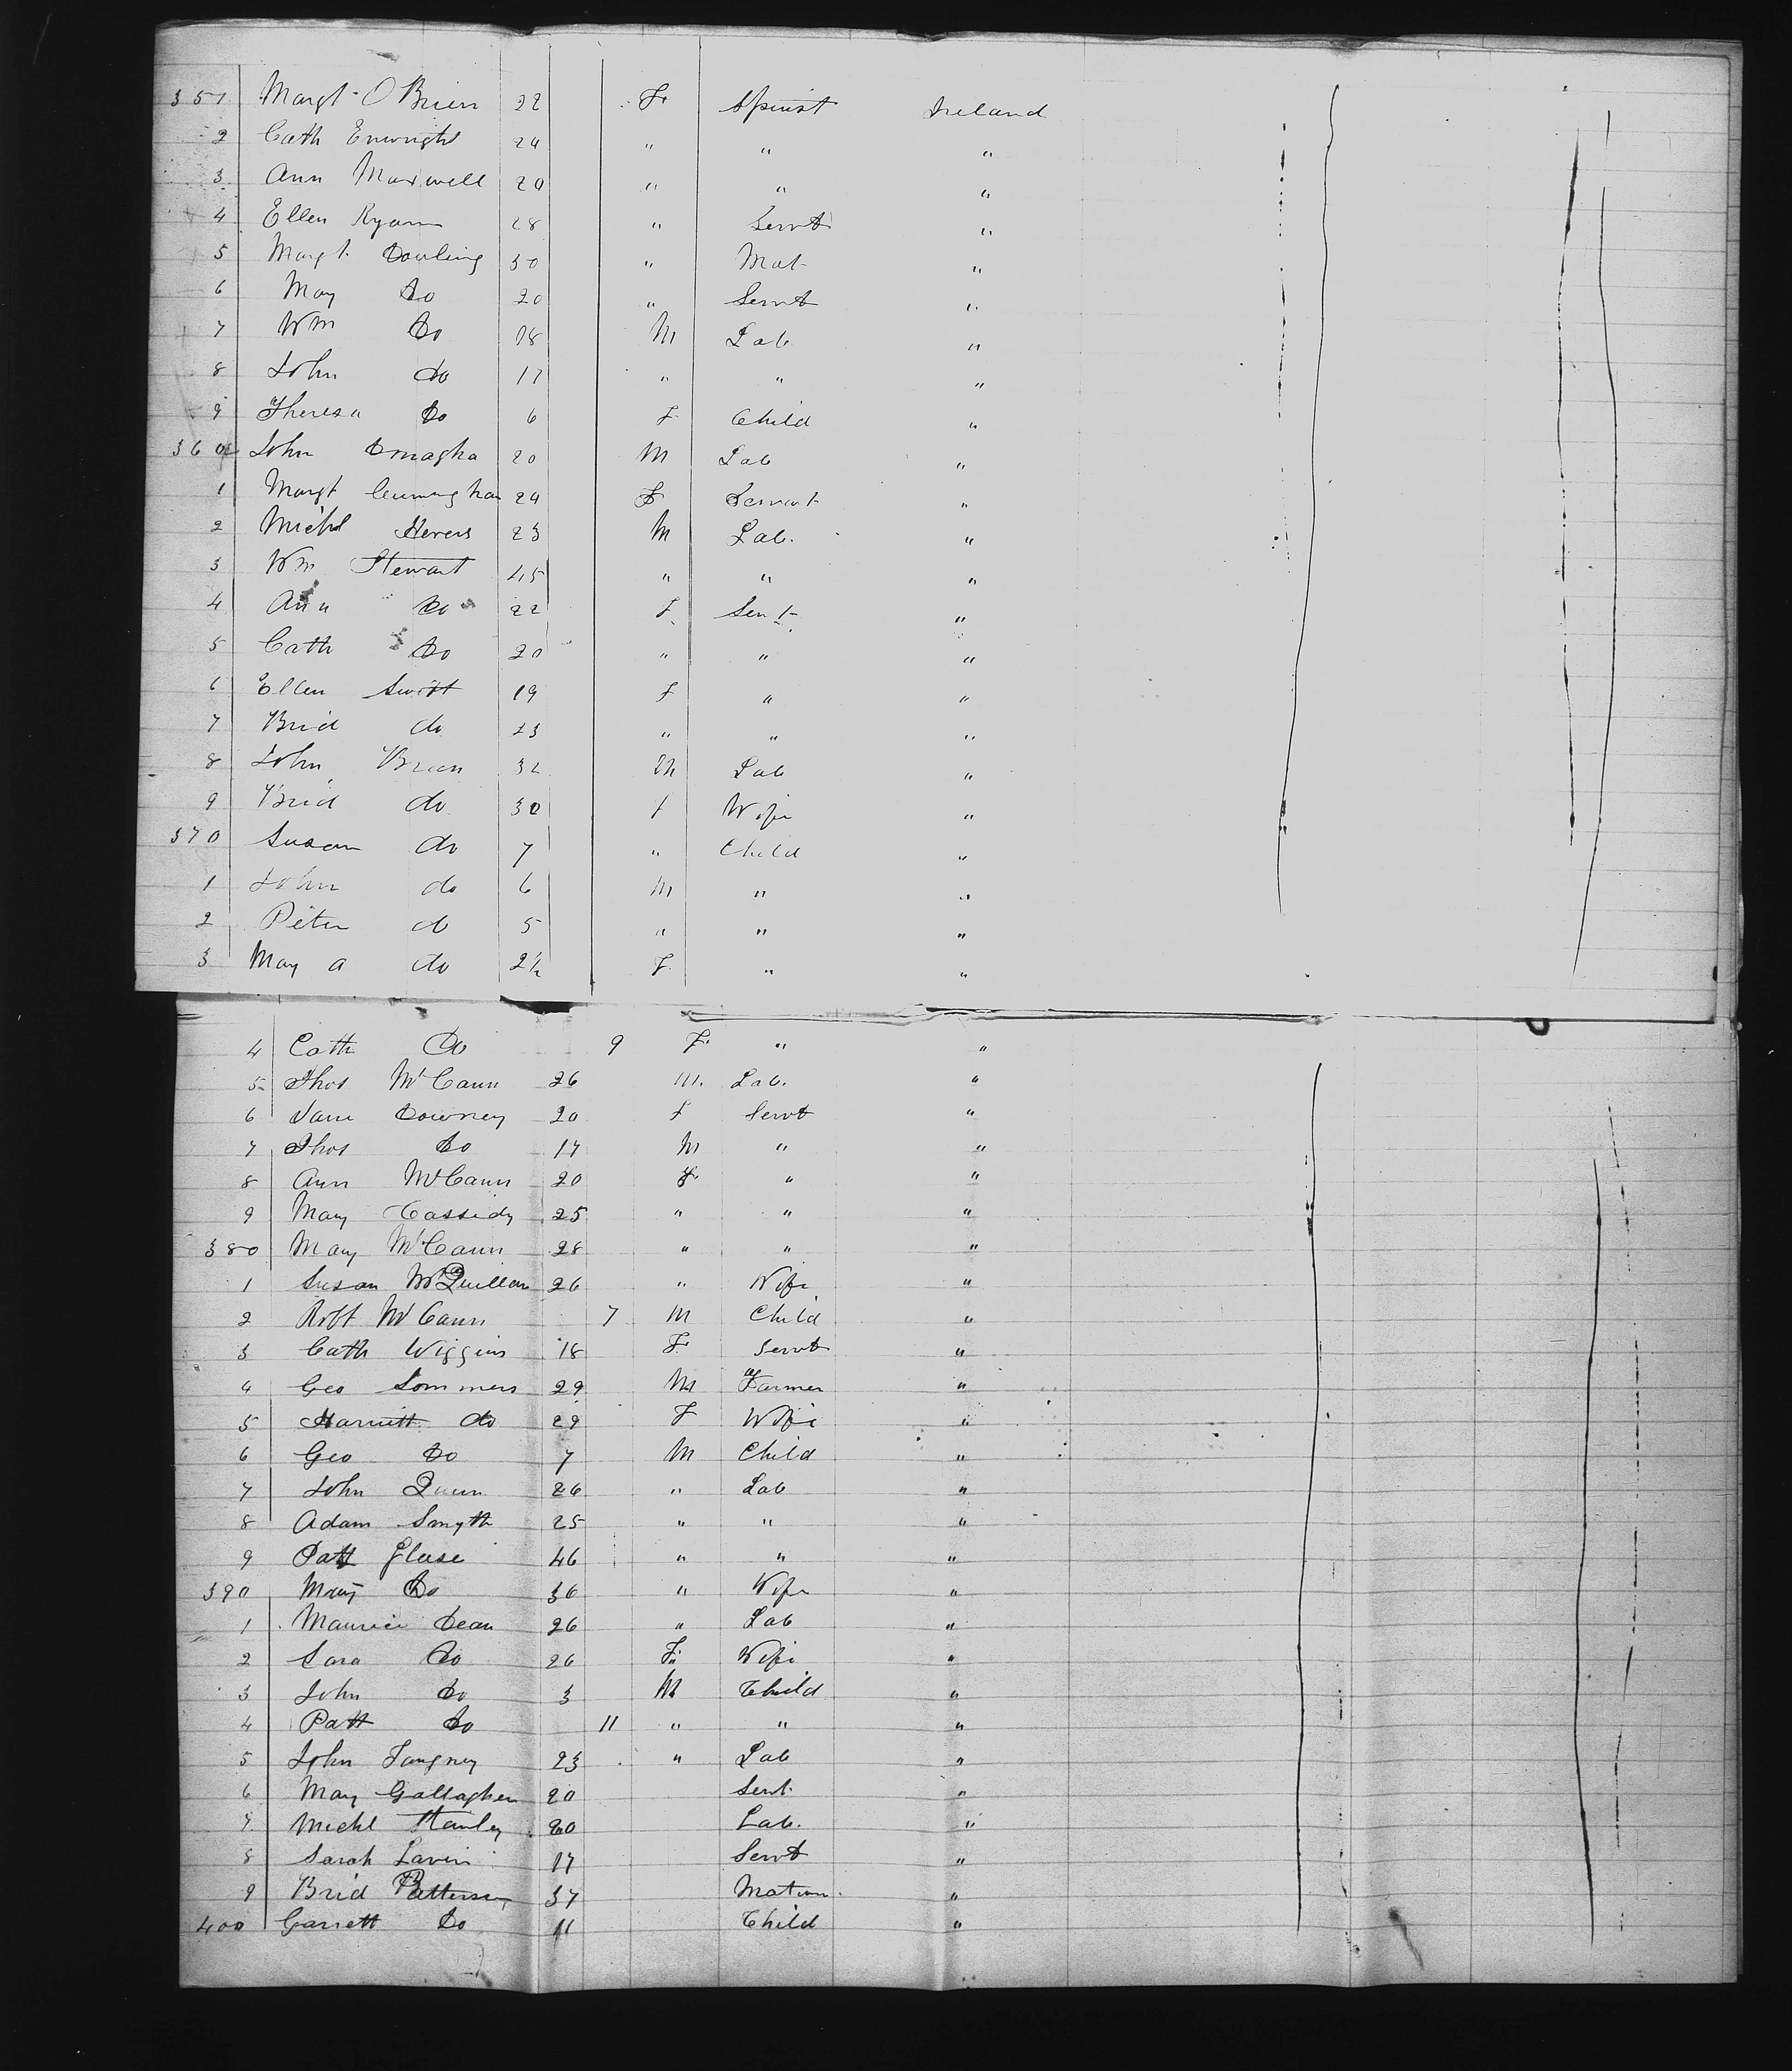 351 Margt O Brien 22 F. Spinst Ireland
2 Cath Enwright 24 " " "
3 Ann Maxwell 20 " " "
4 Ellen Ryan 28 " Servt "
5 Margt Dowling 30 " Mat "
6 May Do 20 " Servt "
7 Wm Do 18 M Lab "
8 John do 11 " " "
9 Theresa Do 6 F Child "
360 John 20 M Lab "
1 Margt 24 F Servant "
2 Michl 23 M Lab. "
3 Wm Stewart 45 " " "
4 Ann Do 22 F Sent "
5 Cath Do 20 " " "
6 Ellen Swift 19 F " "
7 Brid do 23 " " "
8 John 32 M Lab "
9 Brid do 30 f Wife "
370 Susan do 7 " Child "
1 John do 6 M " "
2 Peter do 5 " " "
3 May a do 2½ F. " "
4 Cath Do 9 F. " "
5 Thos McCann 26 M. Lab. "
6 Jane Downey 20 F Servt "
7 Thos Do 17 M " "
8 Ann McCann 20 F. " "
9 May Cassidy 25 " " "
380 May McCann 28 " " "
1 Susan McQuillan 26 " Wife "
2 Robt McCann 7 M Child "
3 Cath Wiggins 18 F Servt "
4 Geo Sommers 29 M Farmer "
5 Harriett do 29 F Wife "
6 Geo Do 7 M Child "
7 John Quinn 26 " Lab "
8 Adam Smyth 25 " " "
9 Patt 46 " " "
390 May Do 36 " Wife "
1 Maurice Dean 26 " Lab "
2 Sara Do 26 F " Wife "
3 John Do 3 M Child "
4 Patt Do 11 " " "
5 John Tangney 23 " Lab "
6 May Gallagher 20 Sent "
7 Michl Stanley 20 Lab. "
8 Sarah Lavin 17 Servt "
9 Brid Patterson 37 Matron. "
400 Garrett Do 11 Child "